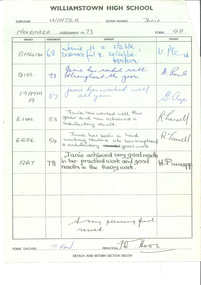 WILLIAMSTOWN HIGH SCHOOL
SURNAME WINTER GIVEN NAMES Janie
November ASSESSMENT 19 73 FORM
ENGLISH 68 Janie is a stable,
successful & reliable
worker.
BIOL. 73 Janie has worked well
throughout the year.
MATHS A 57 Janie has worked well
all year.
ECON. 53 Janie has worked well this
year and has achieved a
satisfactory result. R Farrell
GEOG. 54 Janie has been a hard
working student who has completed
a year's work. R Farrell
ART 78 Janie achieved very good results
in her practical work and good
results in the theory work.
A very pleasing final
record.
FORM TEACHER PRINCIPAL
DETACH AND RETURN SECTION BELOW